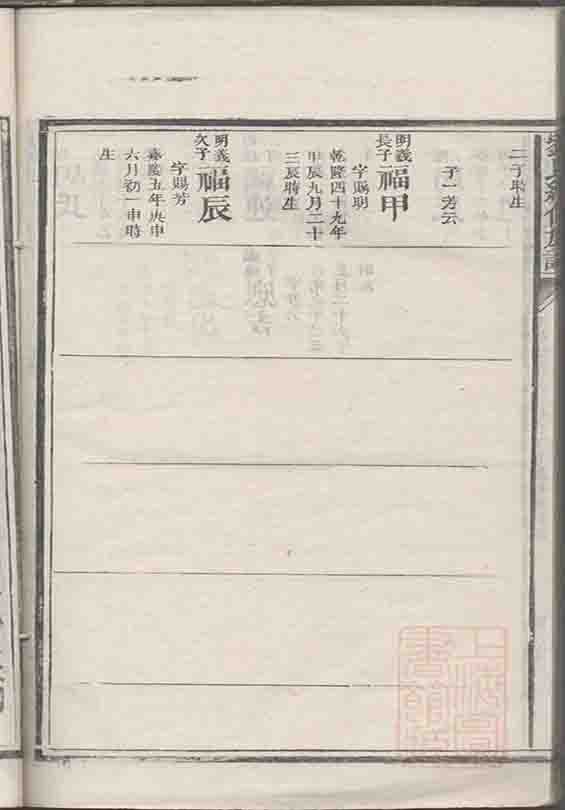 二子時生
子一芳云
明義
長子
福甲
字賜明
乾隆四十九年
甲辰九月二十
三辰時生
明義
次子
福辰
字賜芳
嘉慶五年庚申
六月初一申時
生